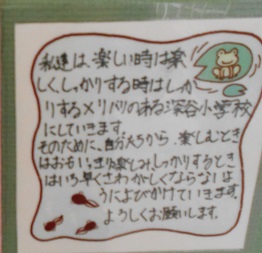 私達は、楽しい時は楽
しくしっかりする時はしっか
りするメリハリのある深谷小学校
にしていきます。
そのために、自分たちから、楽しむとき
はおもいっきり楽しみしっかりするとき
はいち早くさわがしくならないよ
うによびかけていきます。
よろしくお願いします。